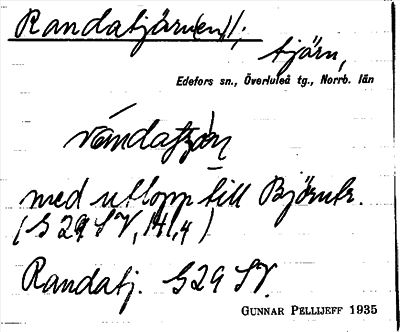 Randatjärn(en);
tjärn,
Edefors sn., Överluleå tg., Norrb. län
med utlopp till Björnbr.
(G 29 SV, 141,4)
Randatj. G29 SV.
GUNNAR PELLIJEFF 1935